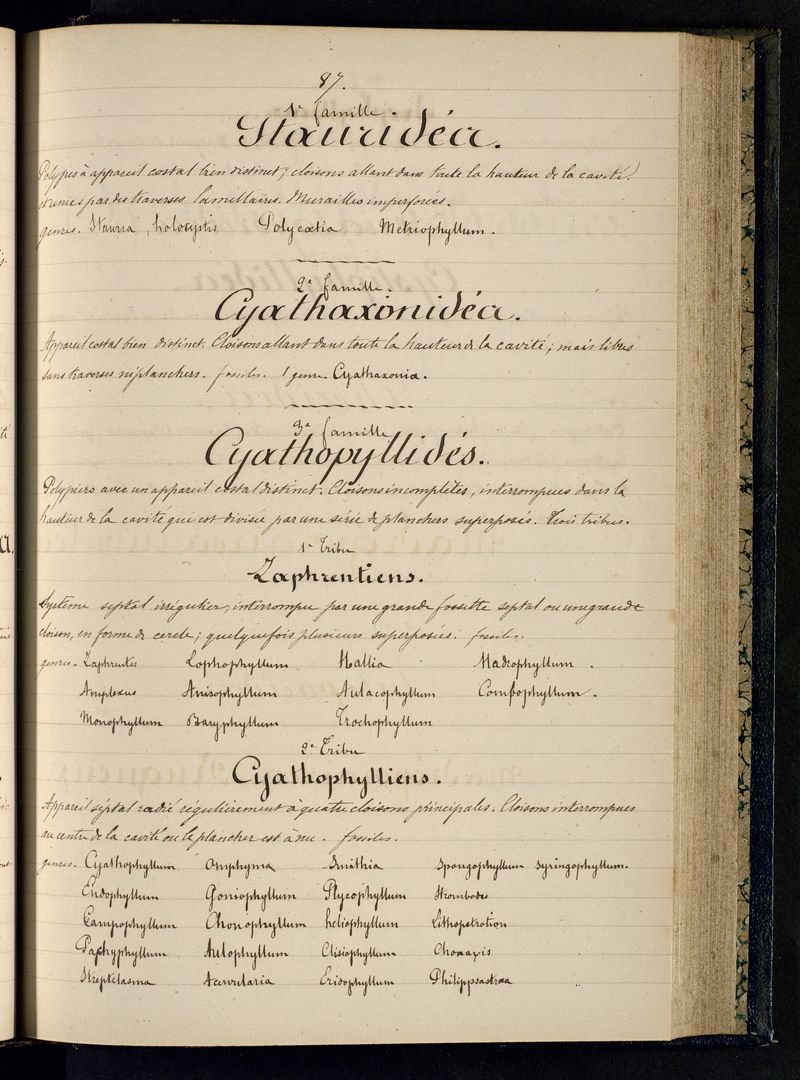 87.
1e famille.
Stauridéa.
Polypes à appareil costal bien distinct; cloisons allant dans toute la hauteur de la cavité.
et unies par des traverses lamellaires. Murailles imperforées.
genres. Stauria, holocystis Polycœlia Metriophyllum.
2e famille.
Cyathaxonidéa.
Appareil costal bien distinct. Cloisons allant dans toute la hauteur de la cavité; mais libres
sans traverses ni planchers. fossiles. 1 genre. Cyathaxonia.
3e famille
Cyathopyllidés.
Polypiers avec un appareil costal distinct. Cloisons incomplètes, interrompues dans la
hauteur de la cavité qui est divisée par une série de planchers superposés. Trois tribus.
1e Tribu
Zaphrentiens.
Système septal irrégulier, interrompu par une grande fossette septal ou une grande
cloison, en forme de crête; quelquefois plusieurs superposées. fossiles.
genres. Zaphrentis Lophophyllum Hallia Hadrophyllum.
Amplexus Anisophyllum Aulacophyllum Combophyllum.
Monophyllum Baryphyllum Trochophyllum
2e Tribu
Cyathophylliens.
Appareil séptal radié régulièrement à quatre cloisons principales. Cloisons interrompues
au centre de la cavité ou le plancher est à nu. fossiles.
genres. Cyathophyllum Omphyma Smithia Spongophyllum Syringophyllum.
Endophyllum Goniophyllum Ptycophyllum Strombodes
Campophyllum Chonophyllum heliophyllum Lithostrotion
Pachyphyllum Aulophyllum Clisiophyllum Chonaxis
Streptelasma Acervularia Eridophyllum Philippsastræa